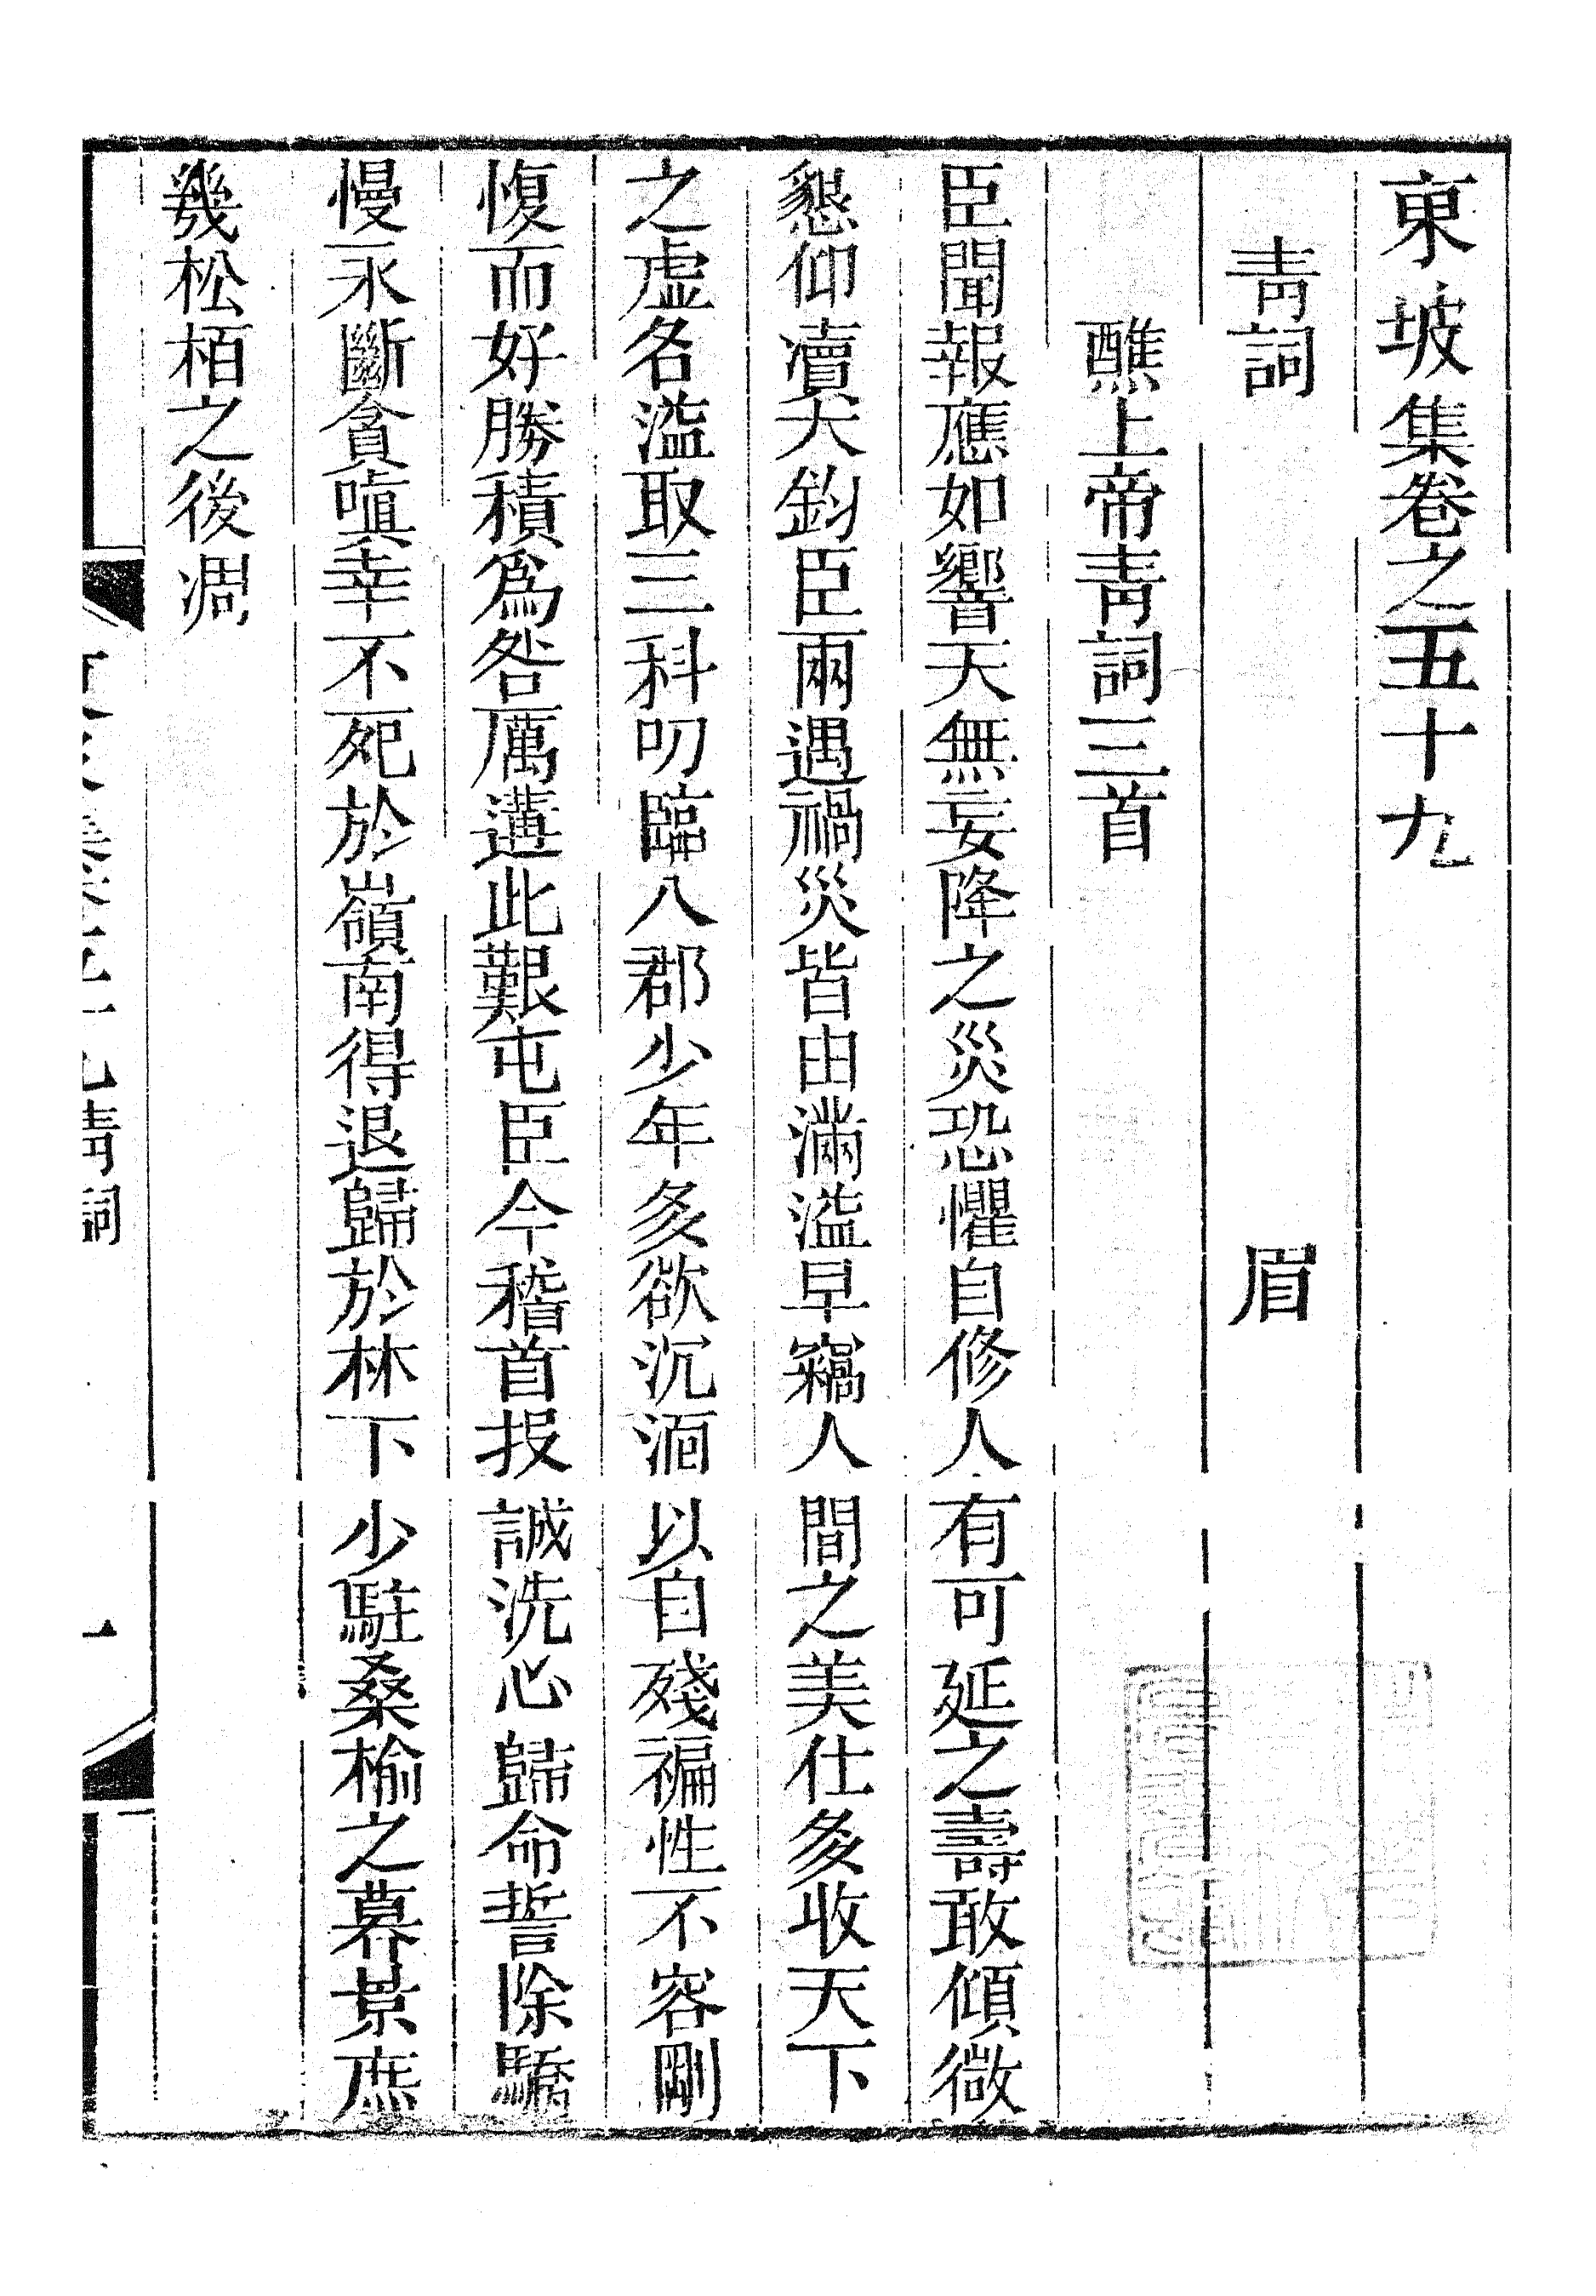 東坡集卷之五十九
青詞 眉
醮上帝青詞三首
臣聞報應如響天無妄降之災恐懼自修人有可延之壽敢傾微
懇仰凟大鈞臣兩遇禍災皆由滿溢早竊人間之美仕多收天下
之虛名溢取三科叨臨八郡少年多欲沉湎以自殘褊性不容剛
愎而好勝積爲咎厲遘此艱屯臣今稽首投誠洗心歸命誓除驕
慢永斷貪嗔幸不死於嶺南得退歸於林下少駐桑榆之暮景庶
幾松栢之後凋
青詞
一